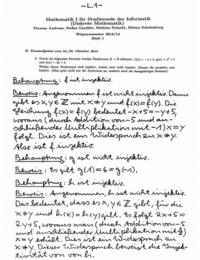 -L.1-
Mathematik I für Studierende der Informatik
(Diskrete Mathematik)
Thomas Andreae, Stefan Geschke, Mathias Schacht, Fabian Schulenburg
Wintersemester 2013/14
Blatt 1
Behauptung: f ist injektiv.
Beweis: Angenommen, f ist nicht injektiv. Dann
gibt es x,y∈ℤ mit x≠y und f(x)=f(y). Die
Gleichung f(x)=f(y) bedeutet -x+5=-y+5,
woraus (durch Addition von -5 und an-
schließende Multiplikation mit -1) x=y
folgt. Dies ist ein Widerspruch zu x≠y.
Also ist f injektiv.
Behauptung: g ist nicht injektiv.
Beweis: Es gilt g(1)=6=g(-1).
Behauptung: h ist injektiv.
Beweis: Angenommen, h ist nicht injektiv.
Das bedeutet, dass es x,y∈ℤ gibt, für die
x≠y und h(x)=h(y) gilt. Es folgt 2x+5=
2y+5, woraus man (durch Addition von -5
und anschließende Multiplikation mit ½)
x=y erhält. Dies ist ein Widerspruch zu
x≠y. Dieser Widerspruch beweist die Injek-
tivität von h.